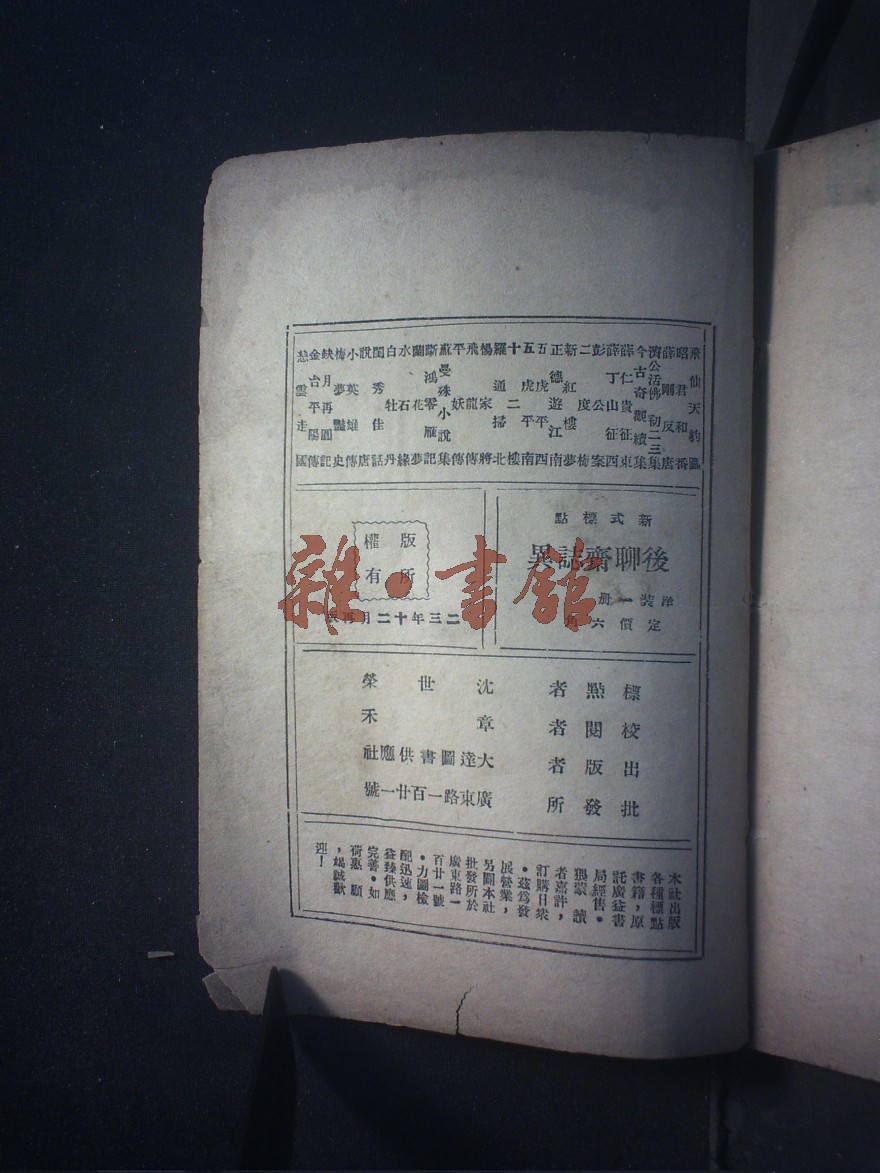 飛仙天豹圖
昭君和番
薛剛反唐
濟公活佛初二三集
今古奇觀續集
薛仁貴征東
薛丁山征西
彭公案
二度梅
新紅樓夢
正德遊江南
五虎平西
五虎平南
十二樓
羅通掃北
楊家將
飛龍傳
平妖傳
蘇曼殊小說集
斷鴻零雁記
蘭花夢
水石緣
白牡丹
閨秀佳話
說唐
小英雄傳
梅夢豔史
缺月再圓記
金台平陽傳
慈雲走國
新式標點
後聊齋誌異
洋裝一册
定價六角
版權
所有
二三年十二月再版
標點者 沈世榮
校閱者 章禾
出版者 大達圖書供應社
批發所 廣東路一百廿一號
本社出版
各種標點
書籍，原
託廣益書
局經售。
猥蒙 讀
者嘉許，
訂購日衆
。茲爲發
展營業，
另關本社
批發所於
廣東路一
百廿一號
。力圖檢
配迅速，
益臻供應
完善。如
荷惠 顧
，竭誠歡
迎！
雜·書館